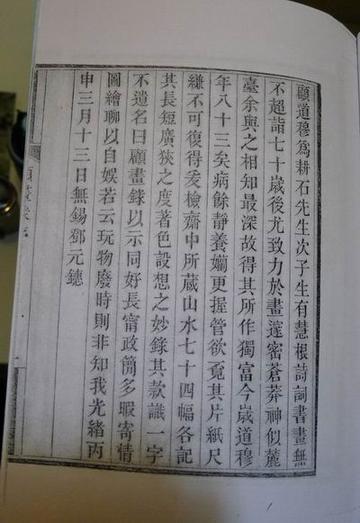 顧道穆爲耕石先生次子生有慧根詩詞書畫無
不超詣七十歲後尤致力於畫邃密蒼莽神似麓
臺余與之相知最深故得其所作獨富今歲道穆
年八十三矣病餘靜養嬾更握管欲覓其片紙尺
縑不可復得爰檢齋中所藏山水七十四幅各記
其長短廣狹之度著色設想之妙錄其款識一字
不遺名曰顧畫錄以示同好長甯政簡多暇寄情
圖繪聊以自娛若云玩物廢時則非知我光緒丙
申三月十三日無錫鄧元鏸